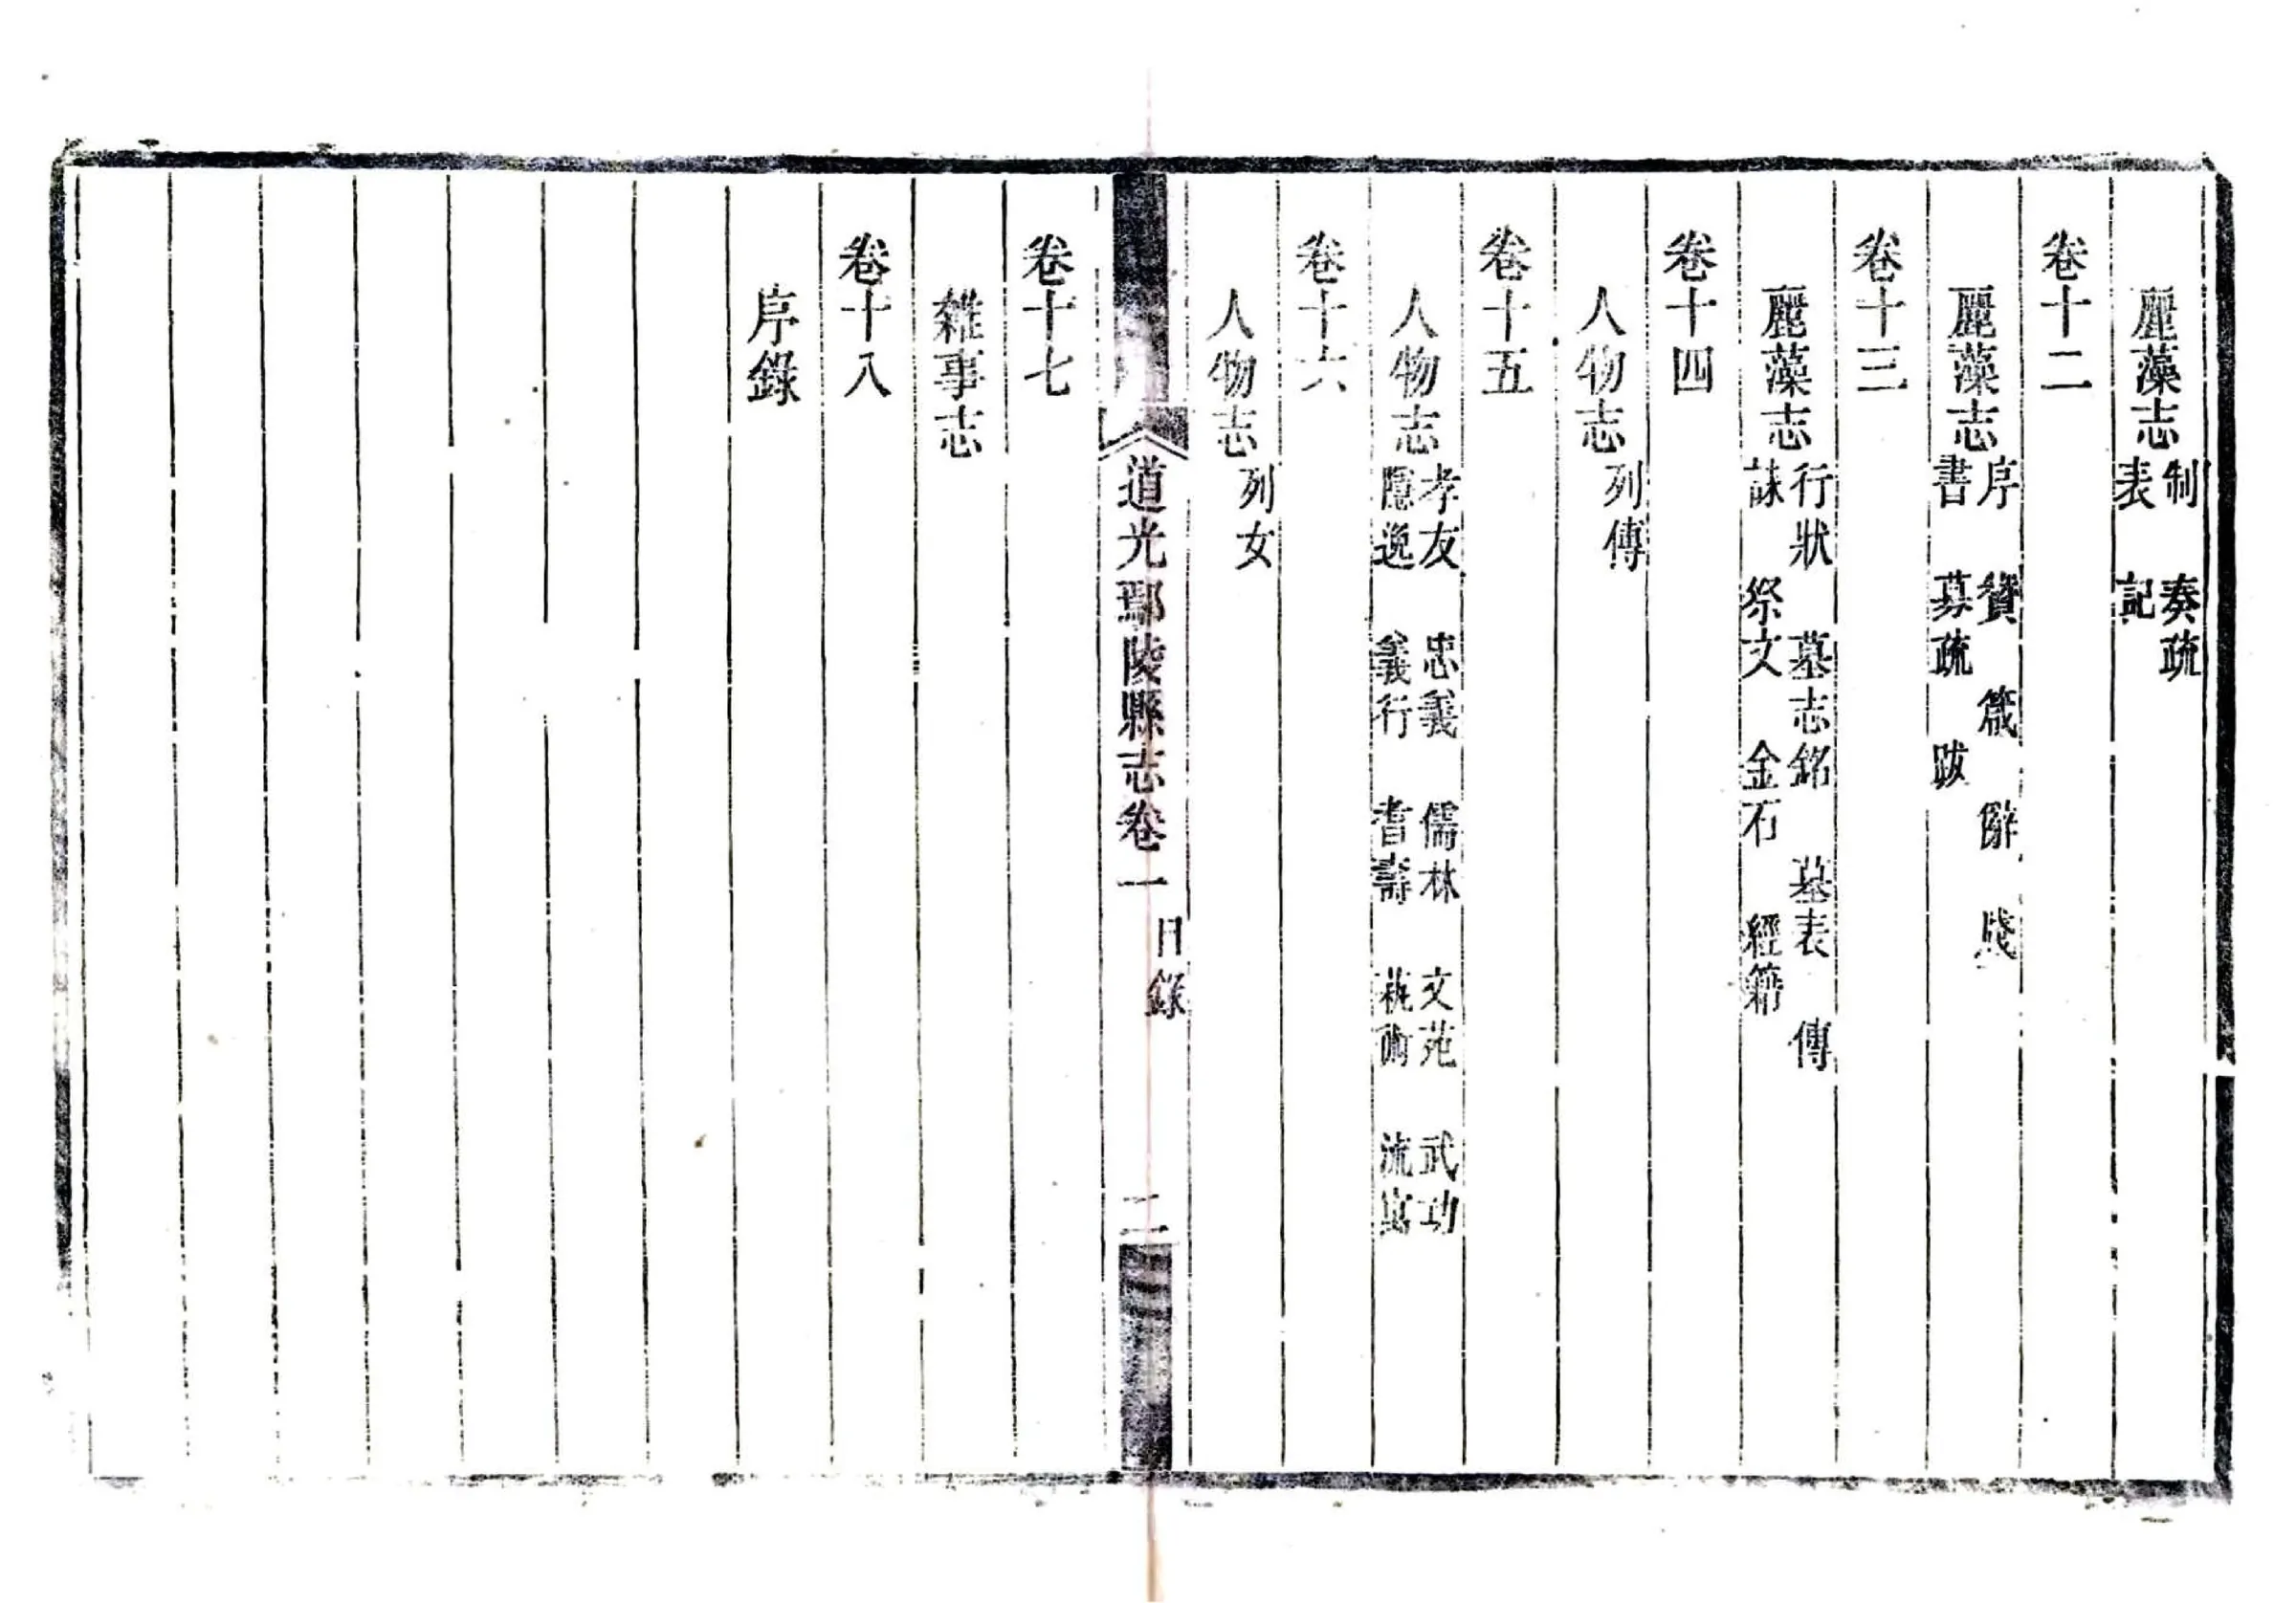 麗藻志 制 奏疏 表 記
卷十二
麗藻志 序 贊 箴 辭 牋 書 募疏 跋
卷十三
麗藻志 行狀 墓志銘 墓表 傳 誄 祭文 金石 經籍
卷十四
人物志 列傳
卷十五
人物志 孝友 忠義 儒林 文苑 武功 隱逸 義行 耆壽 執術 流寓
卷十六
人物志 列女
道光鄢陵縣志卷一 目錄 二
卷十七
雜事志
卷十八
序錄